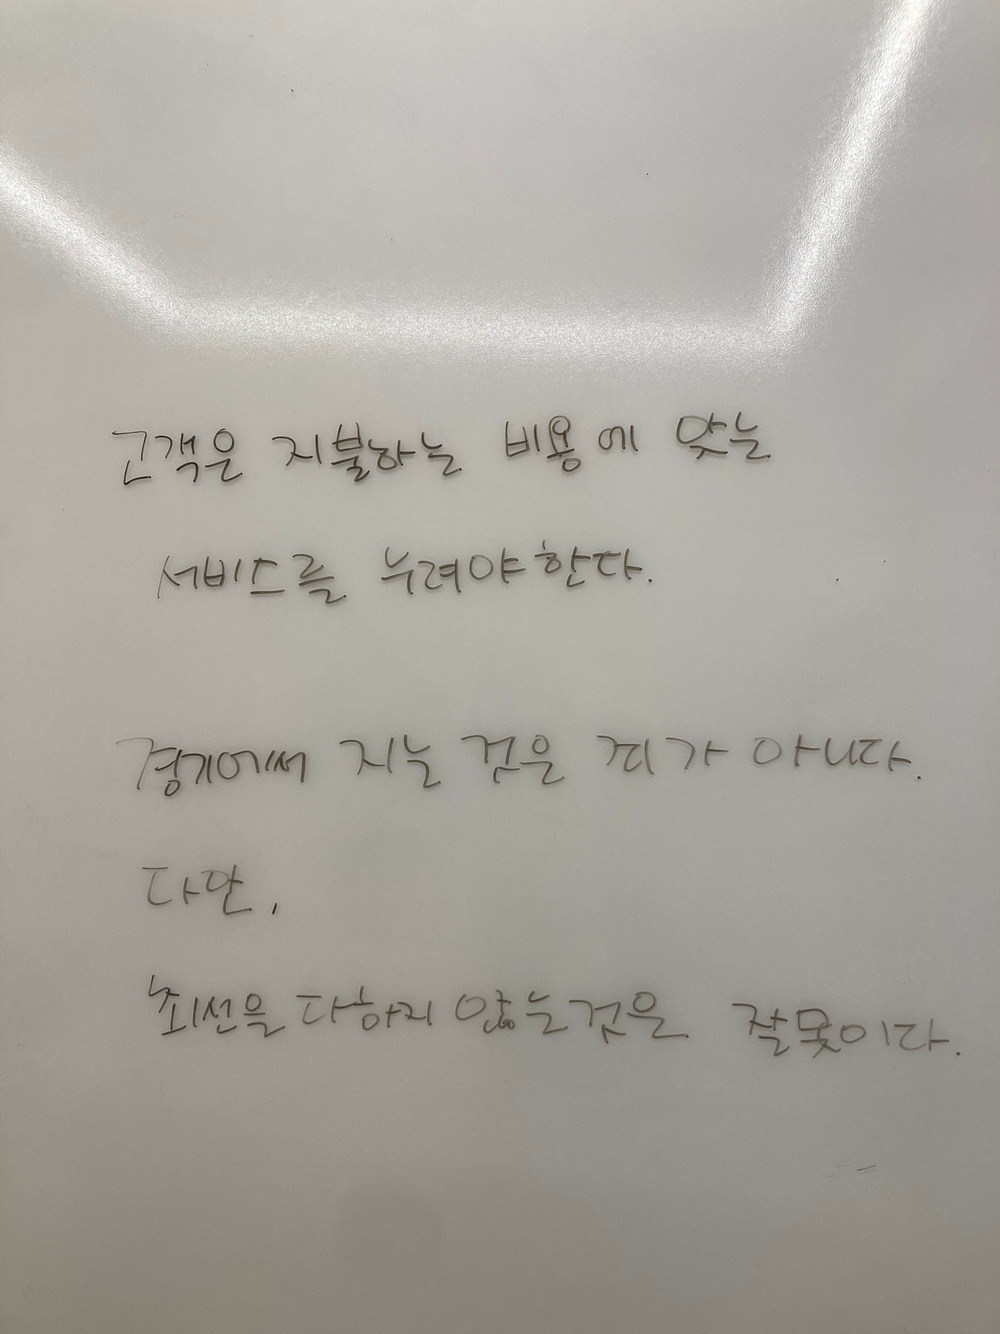 고객은 지불하는 비용에 맞는
서비스를 누려야한다.
경기에서 지는 것은 죄가 아니다.
다만,
최선을 다하지 않는것은 잘못이다.